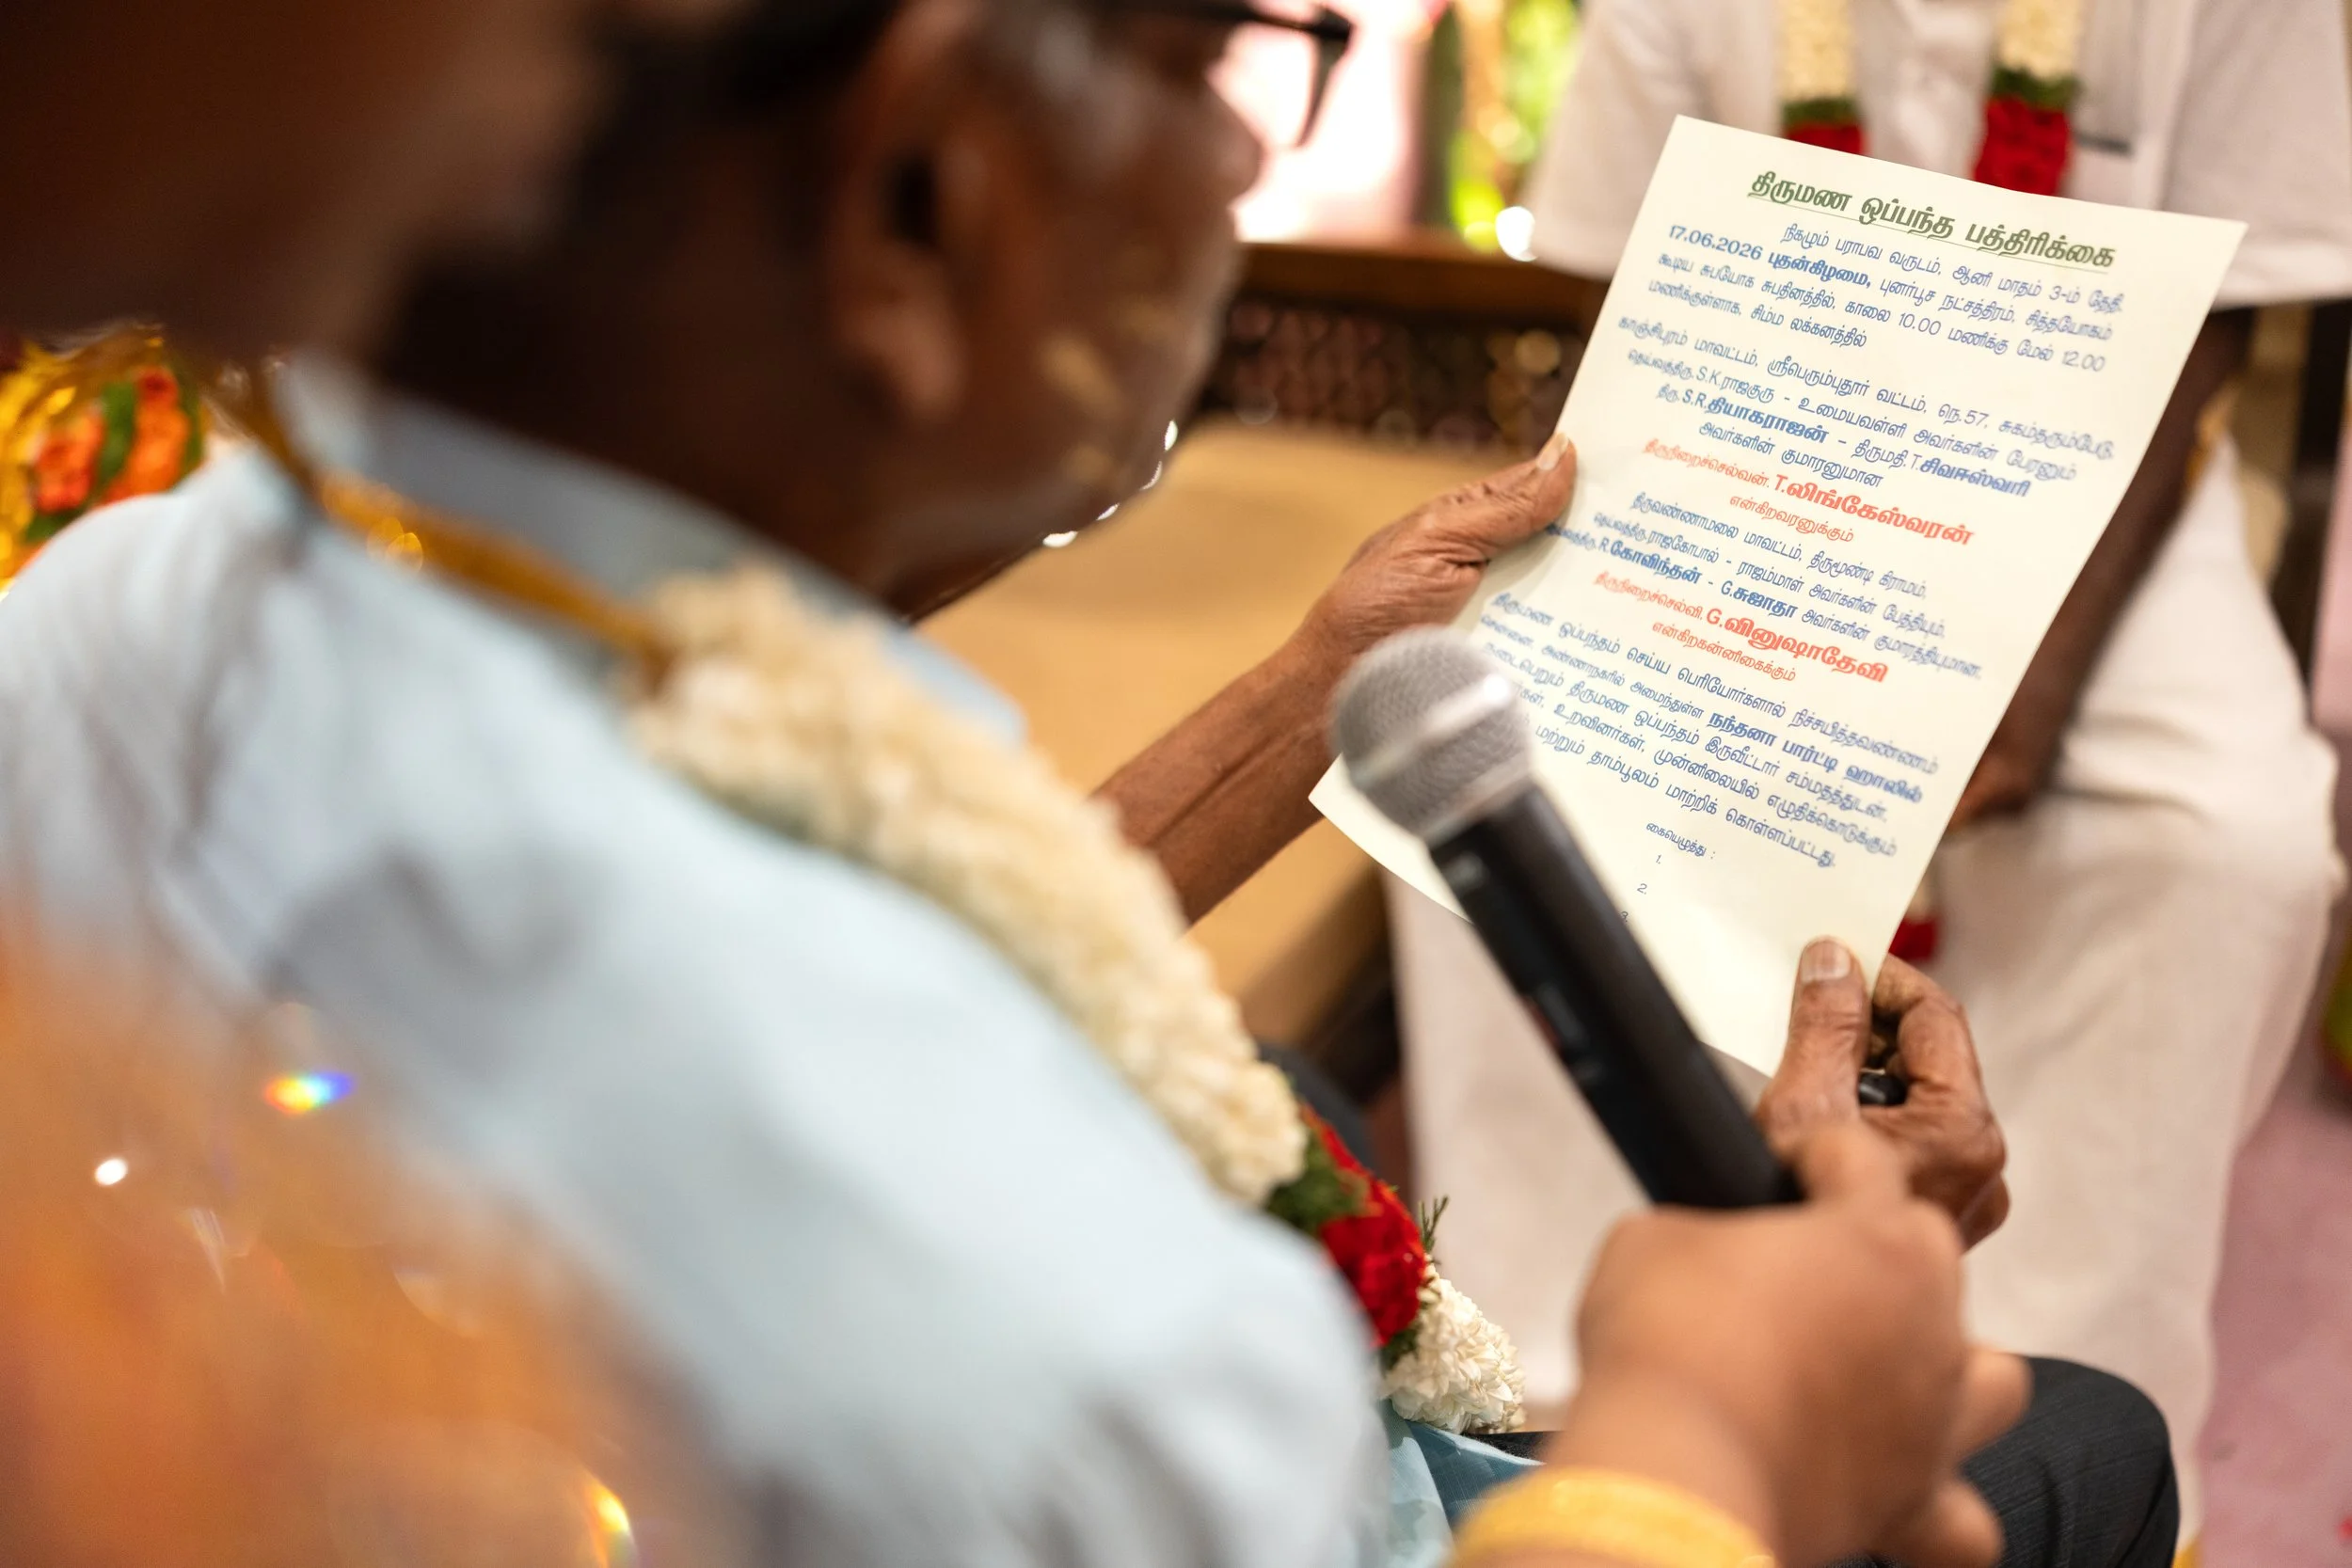 திருமண ஒப்பந்த பத்திரிக்கை
நிகழும் பராபவ வருடம், ஆனி மாதம் 3-ம் தேதி
17.06.2026 புதன்கிழமை, புனர்பூச நட்சத்திரம், சித்தயோகம்
கூடிய சுபயோக சுபதினத்தில், காலை 10.00 மணிக்கு மேல் 12.00
மணிக்குள்ளாக, சிம்ம லக்கனத்தில்
காஞ்சிபுரம் மாவட்டம், ஸ்ரீபெரும்புதூர் வட்டம், நெ.57, சுகம்தரும்பேடு,
தெய்வத்திரு.S.K.ராஜகுரு - உமையவள்ளி அவர்களின் பேரனும்
திரு.S.R.தியாகராஜன் - திருமதி.T.சிவஈஸ்வரி
அவர்களின் குமாரனுமான
திருநிறைச்செல்வன். T.லிங்கேஸ்வரன்
என்கிறவரனுக்கும்
திருவண்ணாமலை மாவட்டம், திருமூண்டி கிராமம்,
தெய்வத்திரு.ராஜகோபால் - ராஜம்மாள் அவர்களின் பேத்தியும்,
R.கோவிந்தன் - G.சுஜாதா அவர்களின் குமாரத்தியுமான,
திருநிறைச்செல்வி. G.வினுஷாதேவி
என்கிறகன்னிகைக்கும்
திருமண ஒப்பந்தம் செய்ய பெரியோர்களால் நிச்சயித்தவண்ணம்
சென்னை, அண்ணாநகரில் அமைந்துள்ள நந்தனா பார்ட்டி ஹாலில்
நடைபெறும் திருமண ஒப்பந்தம் இருவீட்டார் சம்மதத்துடன்,
உறவினர்கள், முன்னிலையில் எழுதிக்கொடுக்கும்
மற்றும் தாம்பூலம் மாற்றிக் கொள்ளப்பட்டது.
கையெழுத்து :
1.
2.
3.